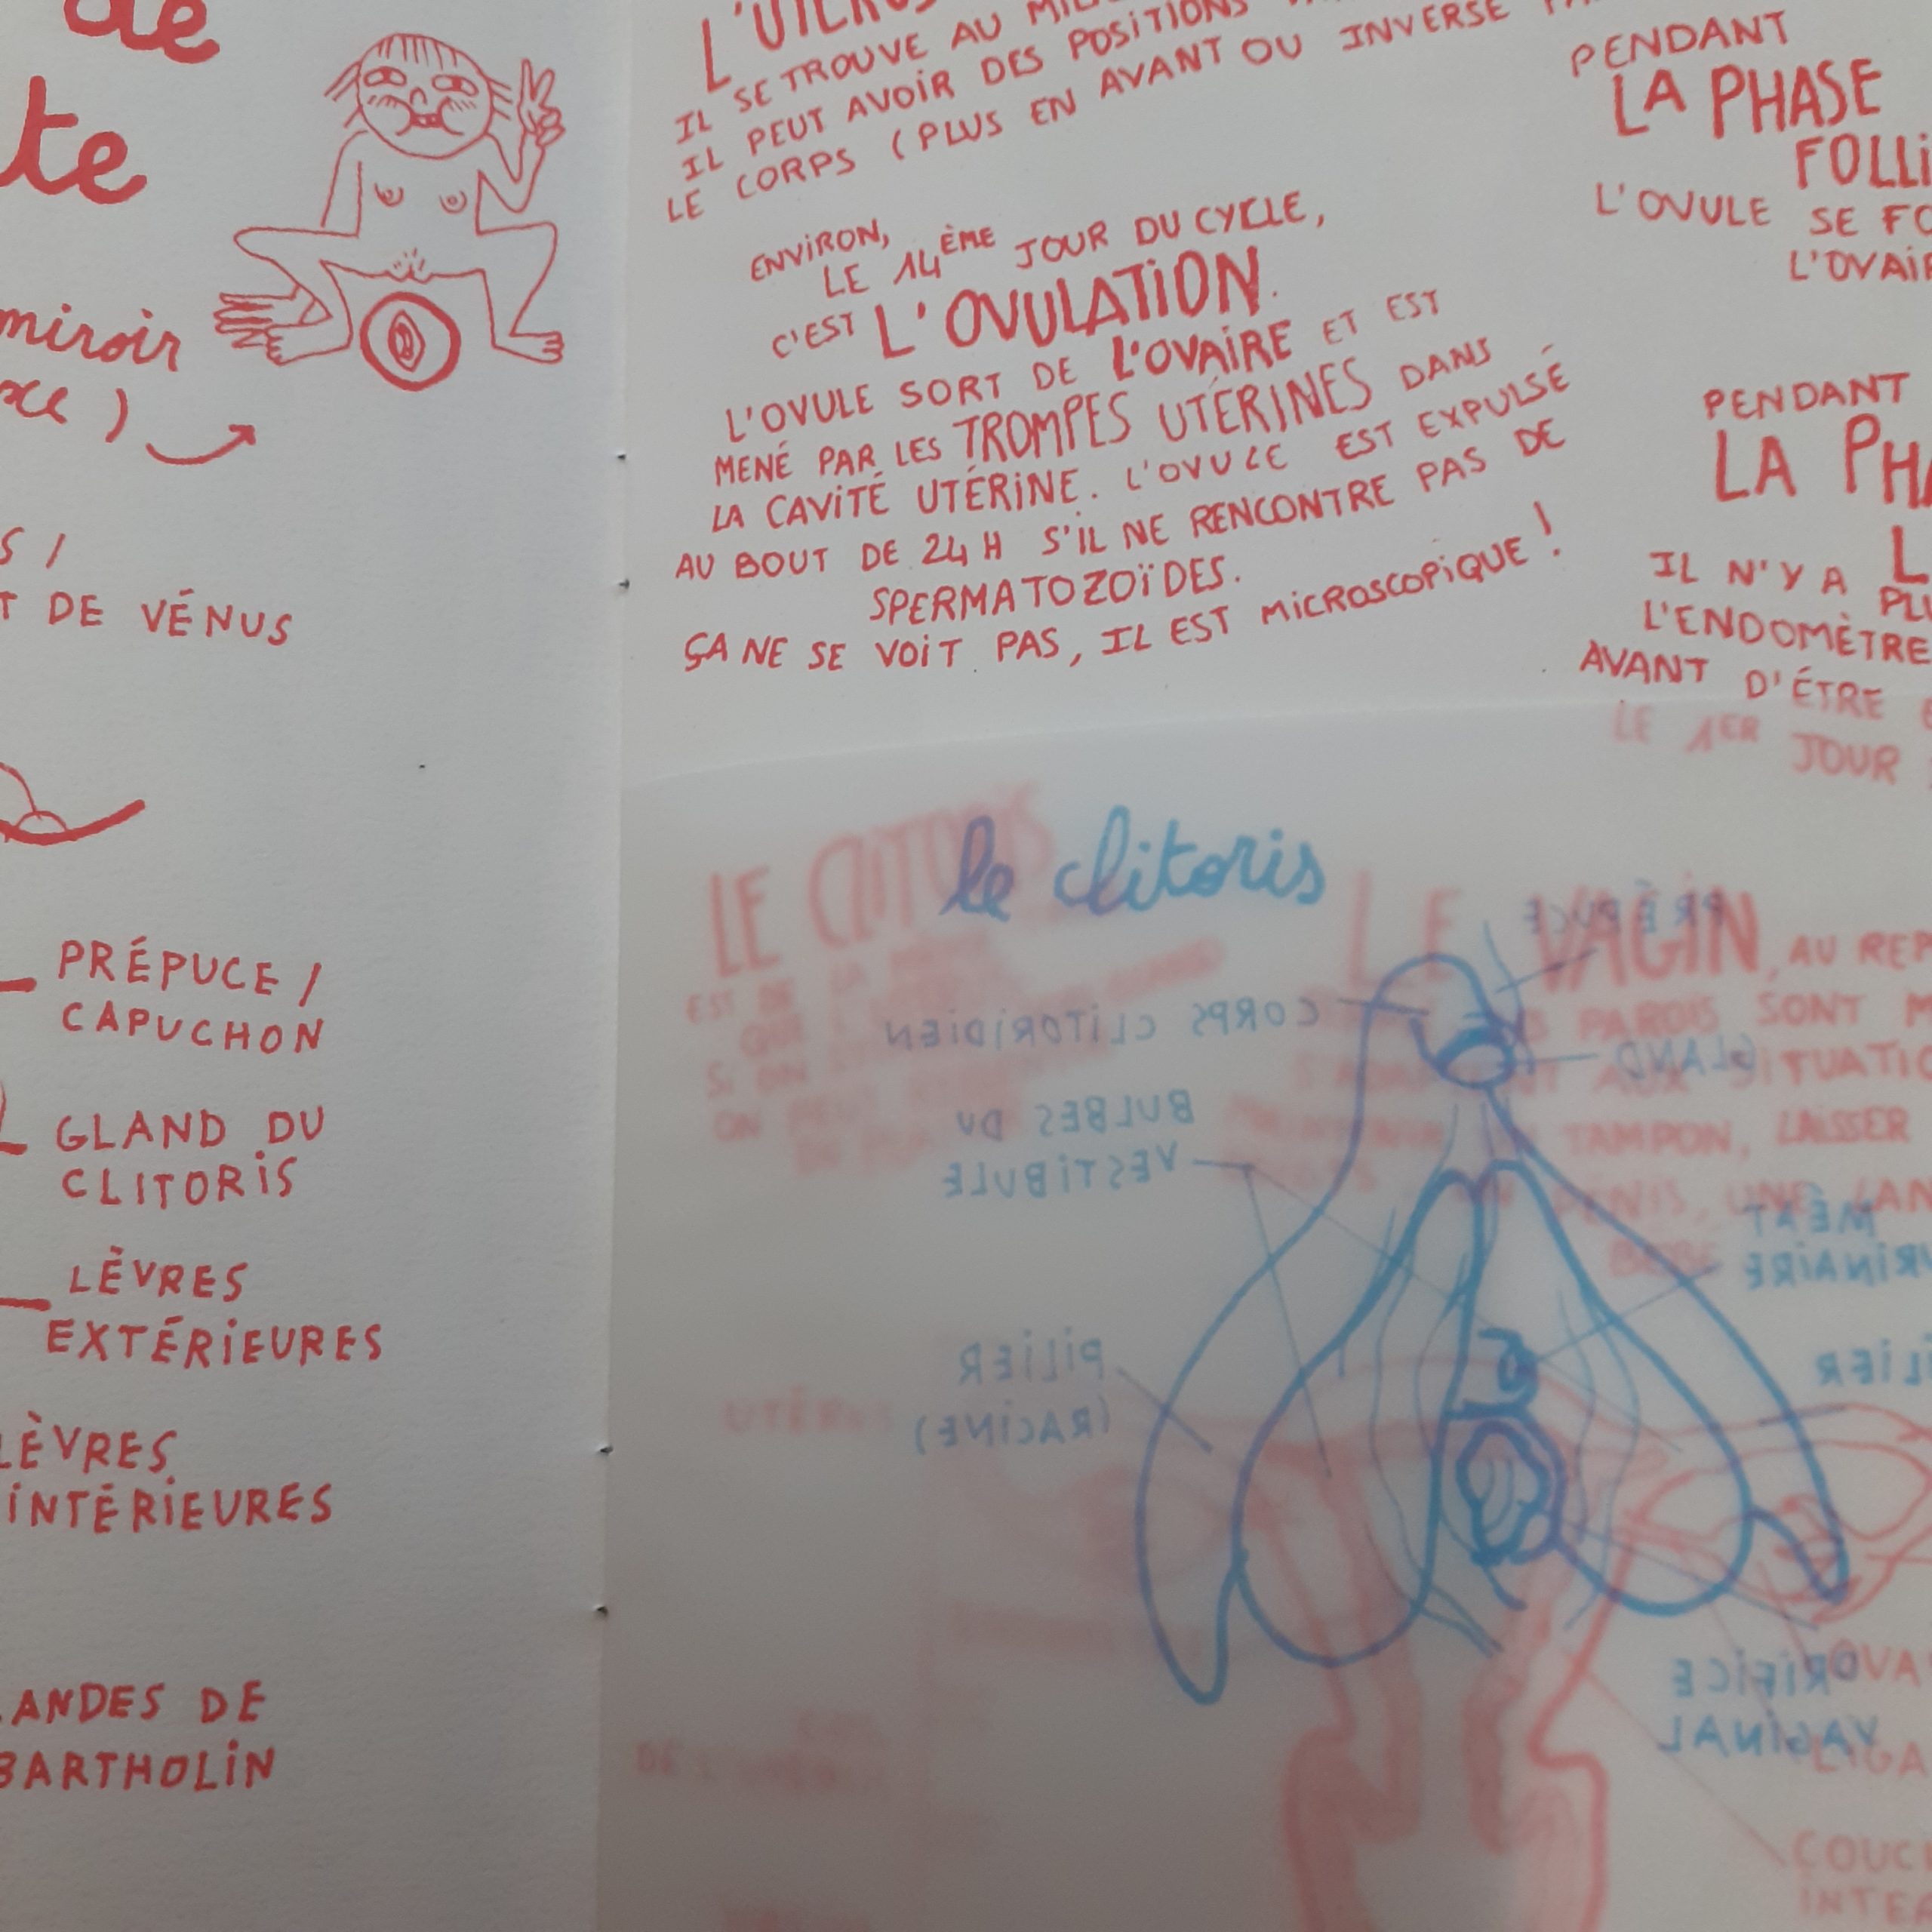 de
te
miroir
)
S /
T DE VÉNUS
PRÉPUCE /
CAPUCHON
GLAND DU
CLITORIS
LÈVRES
EXTÉRIEURES
LÈVRES
INTÉRIEURES
ANDES DE
BARTHOLIN
L'UTÉRUS
IL SE TROUVE AU
IL PEUT AVOIR DES POSITIONS
LE CORPS (PLUS EN AVANT OU INVERSE
ENVIRON,
LE 14ÈME JOUR DU CYCLE,
C'EST L'OVULATION.
L'OVULE SORT DE L'OVAIRE ET EST
MENÉ PAR LES TROMPES UTÉRINES DANS
LA CAVITÉ UTÉRINE. L'OVULE EST EXPULSÉ
AU BOUT DE 24 H S'IL NE RENCONTRE PAS DE
SPERMATOZOÏDES.
ÇA NE SE VOIT PAS, IL EST MICROSCOPIQUE !
PENDANT
LA PHASE
FOLLI
L'OVULE SE FO
L'OVAIR
PENDANT
LA PHA
L
IL N'Y A PLU
L'ENDOMÈTRE
AVANT D'ÊTRE
LE 1ER JOUR
le clitoris
LE CLITORIS
EST DE LA MÊME
SI ON
ON PEUT
LE VAGIN, AU REP
PAROIS SONT M
AUX SITUATIO
TAMPON, LAISSER
PÉNIS, UNE
PRÉPUCE
CORPS CLITORIDIEN
GLAND
BULBES DU
VESTIBULE
MÉAT
URINAIRE
PILIER
(RACINE)
PILIER
UTÉRUS
ORIFICE
VAGINAL
OVA
LIGA
COUC
INTE